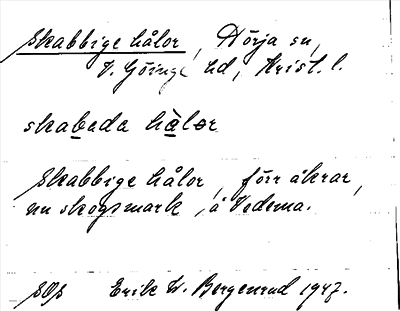 Skabbige hålor, Nörja sn,
V. Göinge hd, Krist. l.
skabeda hàlor
Skabbige hålor, förr åkrar,
nu skogsmark, å Vederna.
SOS Erik W. Bergenrud 1947.